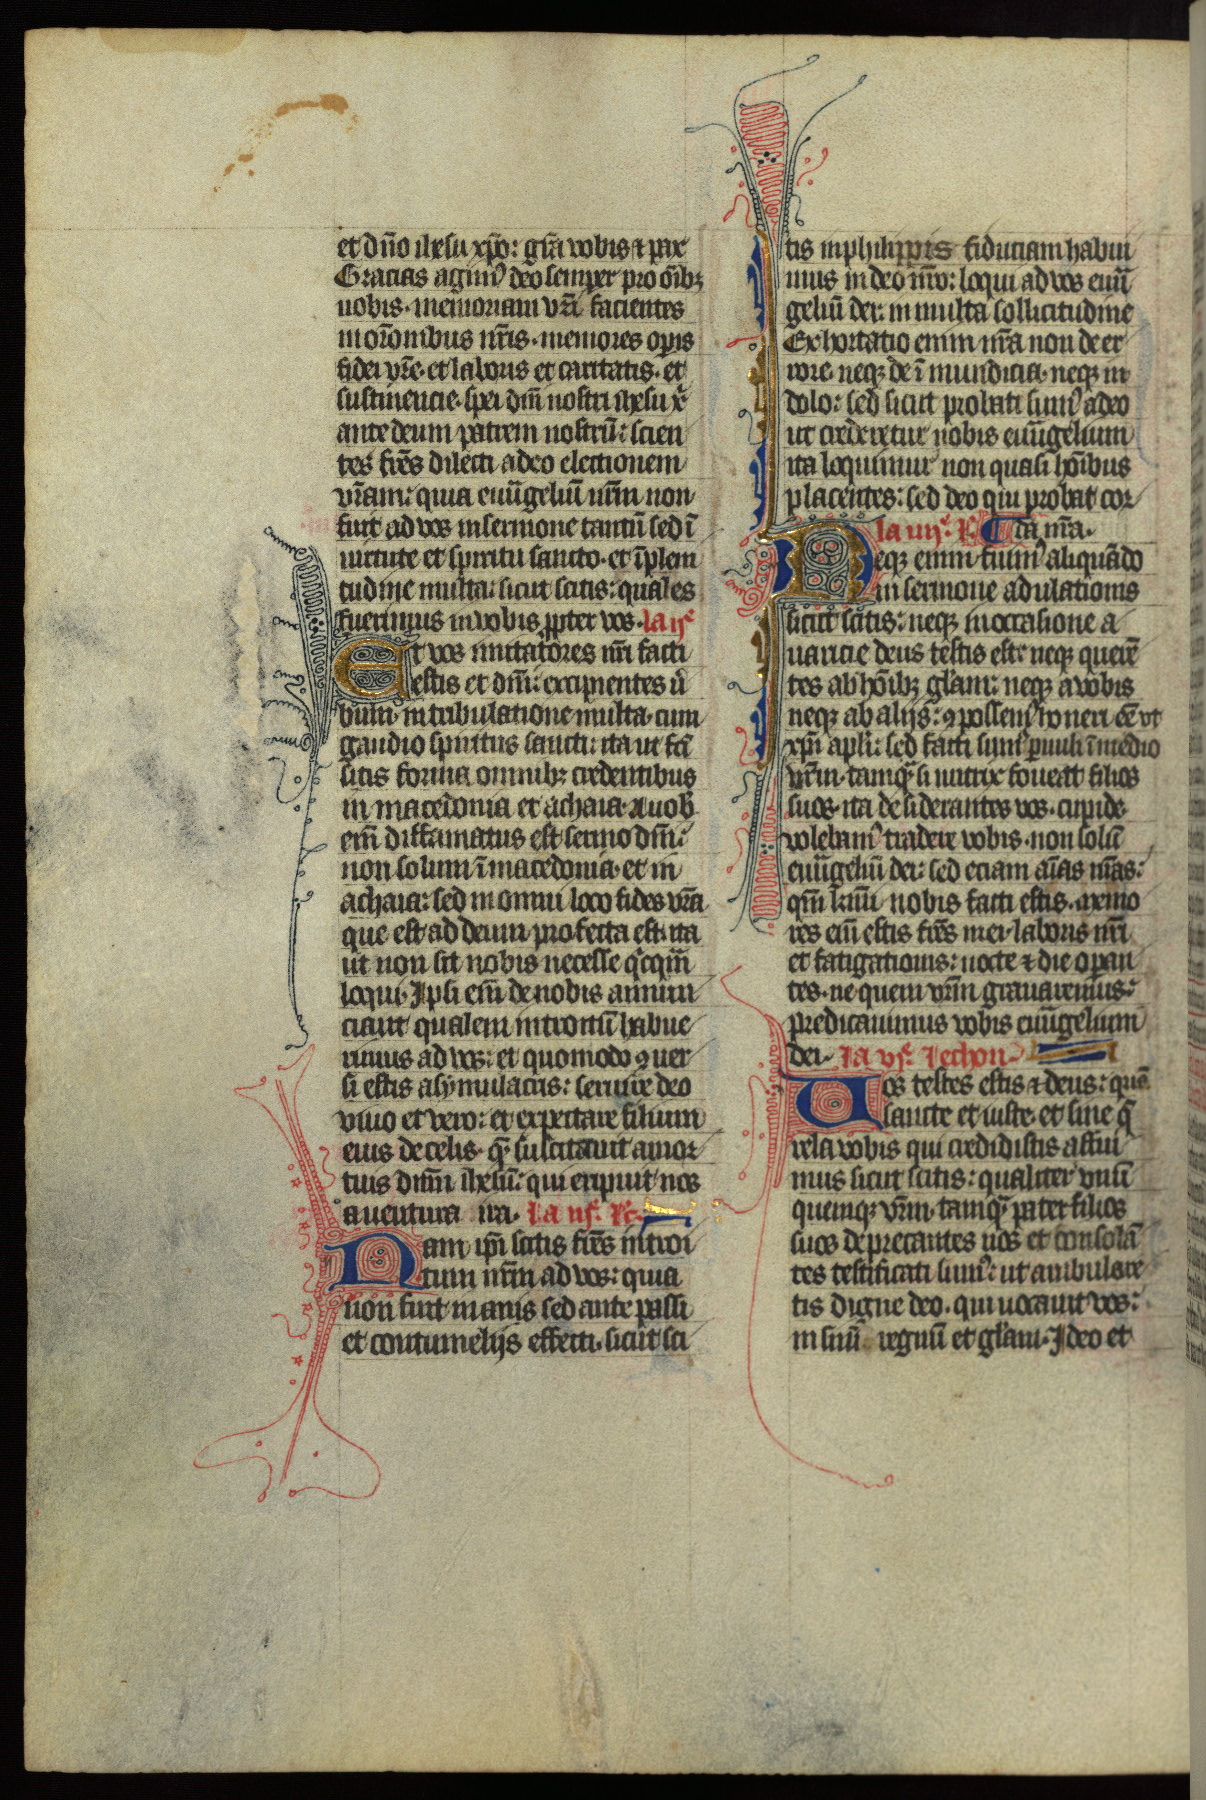 et dño ihesu xp̄o: gr̄a vobis ⁊ pax
Gracias agimꝰ deo semper pro oīb⁊
uobis. memoriam vr̄i facientes
in or̄onibus nr̄is. memores op̄is
fidei vr̄e. et laboris et caritatis. et
sustinencie. spei dn̄i nostri ihesu x̄
ante deum patrem nostrū: scien
tes fr̄es dilecti a deo electionem
vr̄am: quia euu̅geliū nr̄m non
fuit ad vos in sermone tantū sed ī
uirtute et spiritu sancto. et īplem
tudine multa: sicut scitis: quales
fuerimus in vobis ꝓpter vos. la ijᵉ
Et vos imitatores nr̄i facti
estis et dn̄i: excipientes ū
bum. in tribulatione multa. cum
gaudio spiritus sancti: ita ut fc̄i
sitis forma omnib⁊ credentibus
in macedonia et achaia. A uob̄
em̄ diffamatus est sermo dn̄i:
non solum ī macedonia. et in
achaia: sed in omni loco fides vr̄a
que est ad deum profecta est. ita
ut non sit nobis necesse qͥcqͣm
loqui. Ipsi em̄ de nobis annun
ciant qualem introitū habue
rimus ad vos: et quomodo ꝯuer
si estis a symulacris: seruire deo
viuo et vero: et expectare filium
eius de celis. qͣ suscitauit a mor
tuis dn̄m ihesū: qui eripuit nos
a uentura ira. la iijᵉ. R̄c.
Nam ip̄i scitis fr̄es introi
tum nr̄m ad vos: quia
non fuit inanis sed ante passi
et contumelijs effecti. sicut sci
tis in philippis fiduciam habui
mus in deo nr̄o: loqui ad vos euu̅
geliū dei: in multa sollicitudine
Exhortatio enim nr̄a non de er
rore. neq⁊ de ī mundicia. neq⁊ in
dolo: sed sicut probati sumꝰ a deo
ut crederetur nobis euu̅gelium
ita loquimur non quasi hoībus
placentes: sed deo qui probat cor
la iiijᵉ. R̄. da nr̄a.
Neq⁊ enim fuimꝰ aliquādo
in sermone adulationis
sicut scitis: neq⁊ in occasione a
uaricie deus testis est: neq⁊ querē
tes ab hoīb⁊ gl̄am: neq⁊ a vobis
neq⁊ ab alijs: ꝯ possemꝰ honeri ēe vt
xp̄i apl̄i: sed facti sumꝰ puuli ī medio
vr̄m. tamqͣ si nutrix foueat filios
suos. ita desiderantes vos. cupide
volebamꝰ tradere vobis. non solū
euu̅geliū dei: sed eciam aīas nr̄as:
qm̄ kr̄mi nobis facti estis. Memo
res em̄ estis fr̄es mei. laboris nr̄i
et fatigationis: nocte ⁊ die operan
tes. ne quem vr̄m grauaremus:
predicauimus vobis euu̅gelium
dei. la vᵉ. lechon
Uos testes estis ⁊ deus: quā
sancte et iuste. et sine qͣ
rela vobis qui credidistis affui
mus sicut scitis: qualiter vnū
quemq⁊ vr̄m. tamqͣ pater filios
suos deprecantes uos et consolā
tes testificati sumꝰ: ut ambulare
tis digne deo. qui uocauit vos:
in suū regnū et gl̄am. Ideo et